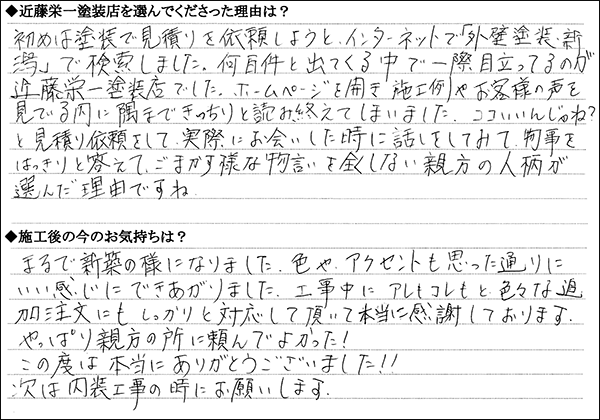 ◆近藤栄一塗装店を選んでくださった理由は？
初めは塗装で見積りを依頼しようと、インターネットで「外壁塗装・新
潟」で検索しました。何百件と出てくる中で一際目立ってるのが
近藤栄一塗装店でした。ホームページを開き施工例やお客様の声を
見ている内に隅まできっちりと読み終えてしまいました。ココいいんじゃね?
と見積り依頼をして、実際にお会いした時に話しをしてみて、物事を
はっきりと答えて、ごまかす様な物言いを全くしない親方の人柄が
選んだ理由ですね。
◆施工後の今のお気持ちは？
まるで新築の様になりました。色や、アクセントも思った通りに
いい感じにできあがりました。工事中にアレもコレもと、色々な追
加注文にもしっかりと対応して頂いて本当に感謝しております。
やっぱり親方の所に頼んでよかった!
この度は本当にありがとうございました!!
次は内装工事の時にお願いします。